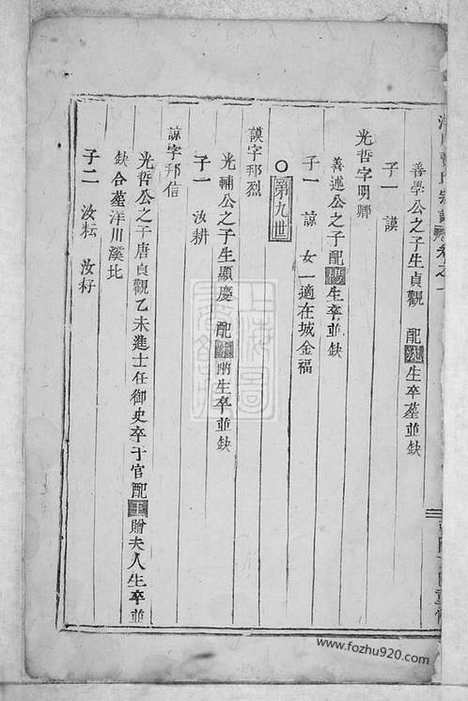 善學公之子生貞觀 配 生卒墓並缺
子一 謨
光哲字明卿
善述公之子配 生卒並缺
子一 諒 女一適在城金福
○第九世
謨字邦烈
光輔公之子生顯慶 配 生卒並缺
子一 汝耕
諒字邦信
光哲公之子唐貞觀乙未進士任御史卒于官配王贈夫人生卒並
缺合墓洋川溪北
子二 汝耘 汝耔
www.fozhu920.com